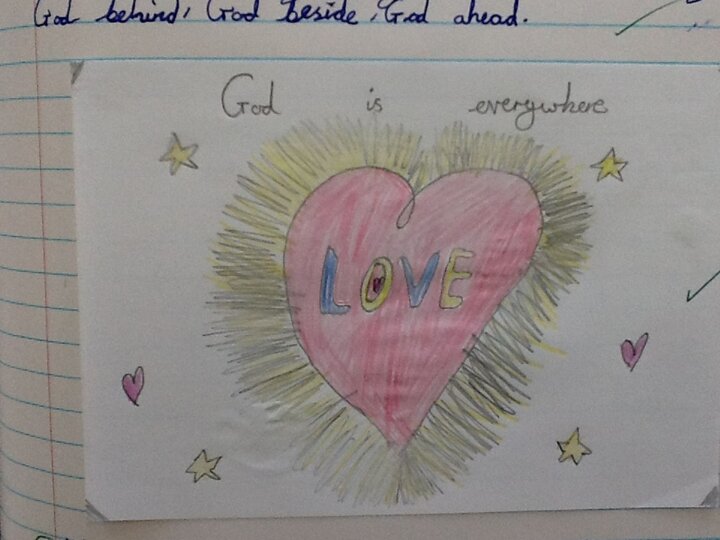 God behind, God beside, God ahead.
God is everywhere
LOVE